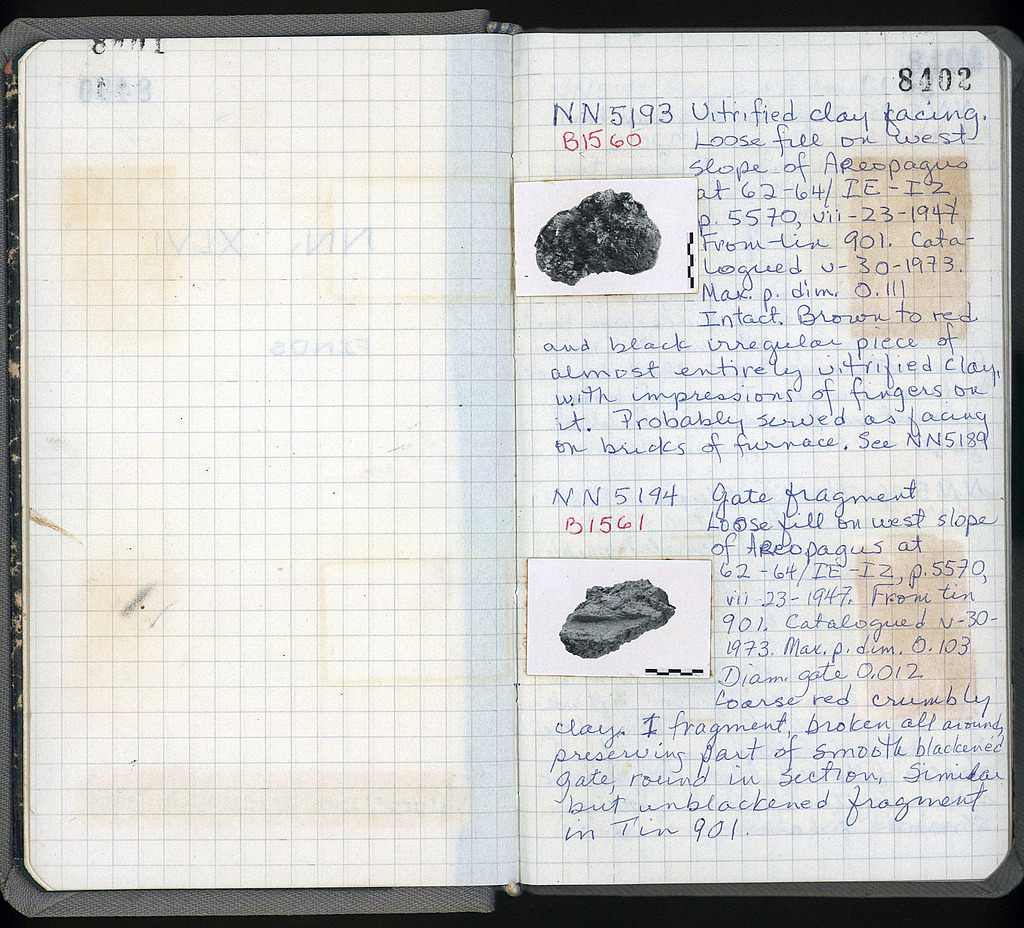 8402
NN 5193 Vitrified clay facing.
B1560 Loose fill on west
slope of Areopagus
at 62-64/IE-IZ
p. 5570, vii-23-1947
From tin 901. Cata-
logued v-30-1973.
Max. p. dim. 0.111
Intact. Brown to red
and black irregular piece of
almost entirely vitrified clay,
with impressions of fingers on
it. Probably served as facing
on bricks of furnace. See NN5189
NN 5194 Gate fragment
B1561 Loose fill on west slope
of Areopagus at
62-64/IE-IZ, p. 5570,
vii-23-1947. From tin
901. Catalogued v-30-
1973. Max. p. dim. 0.103
Diam. gate 0.012
Coarse red crumbly
clay. 1 fragment, broken all around,
preserving part of smooth blackened
gate, round in section. Similar
but unblackened fragment
in Tin 901.